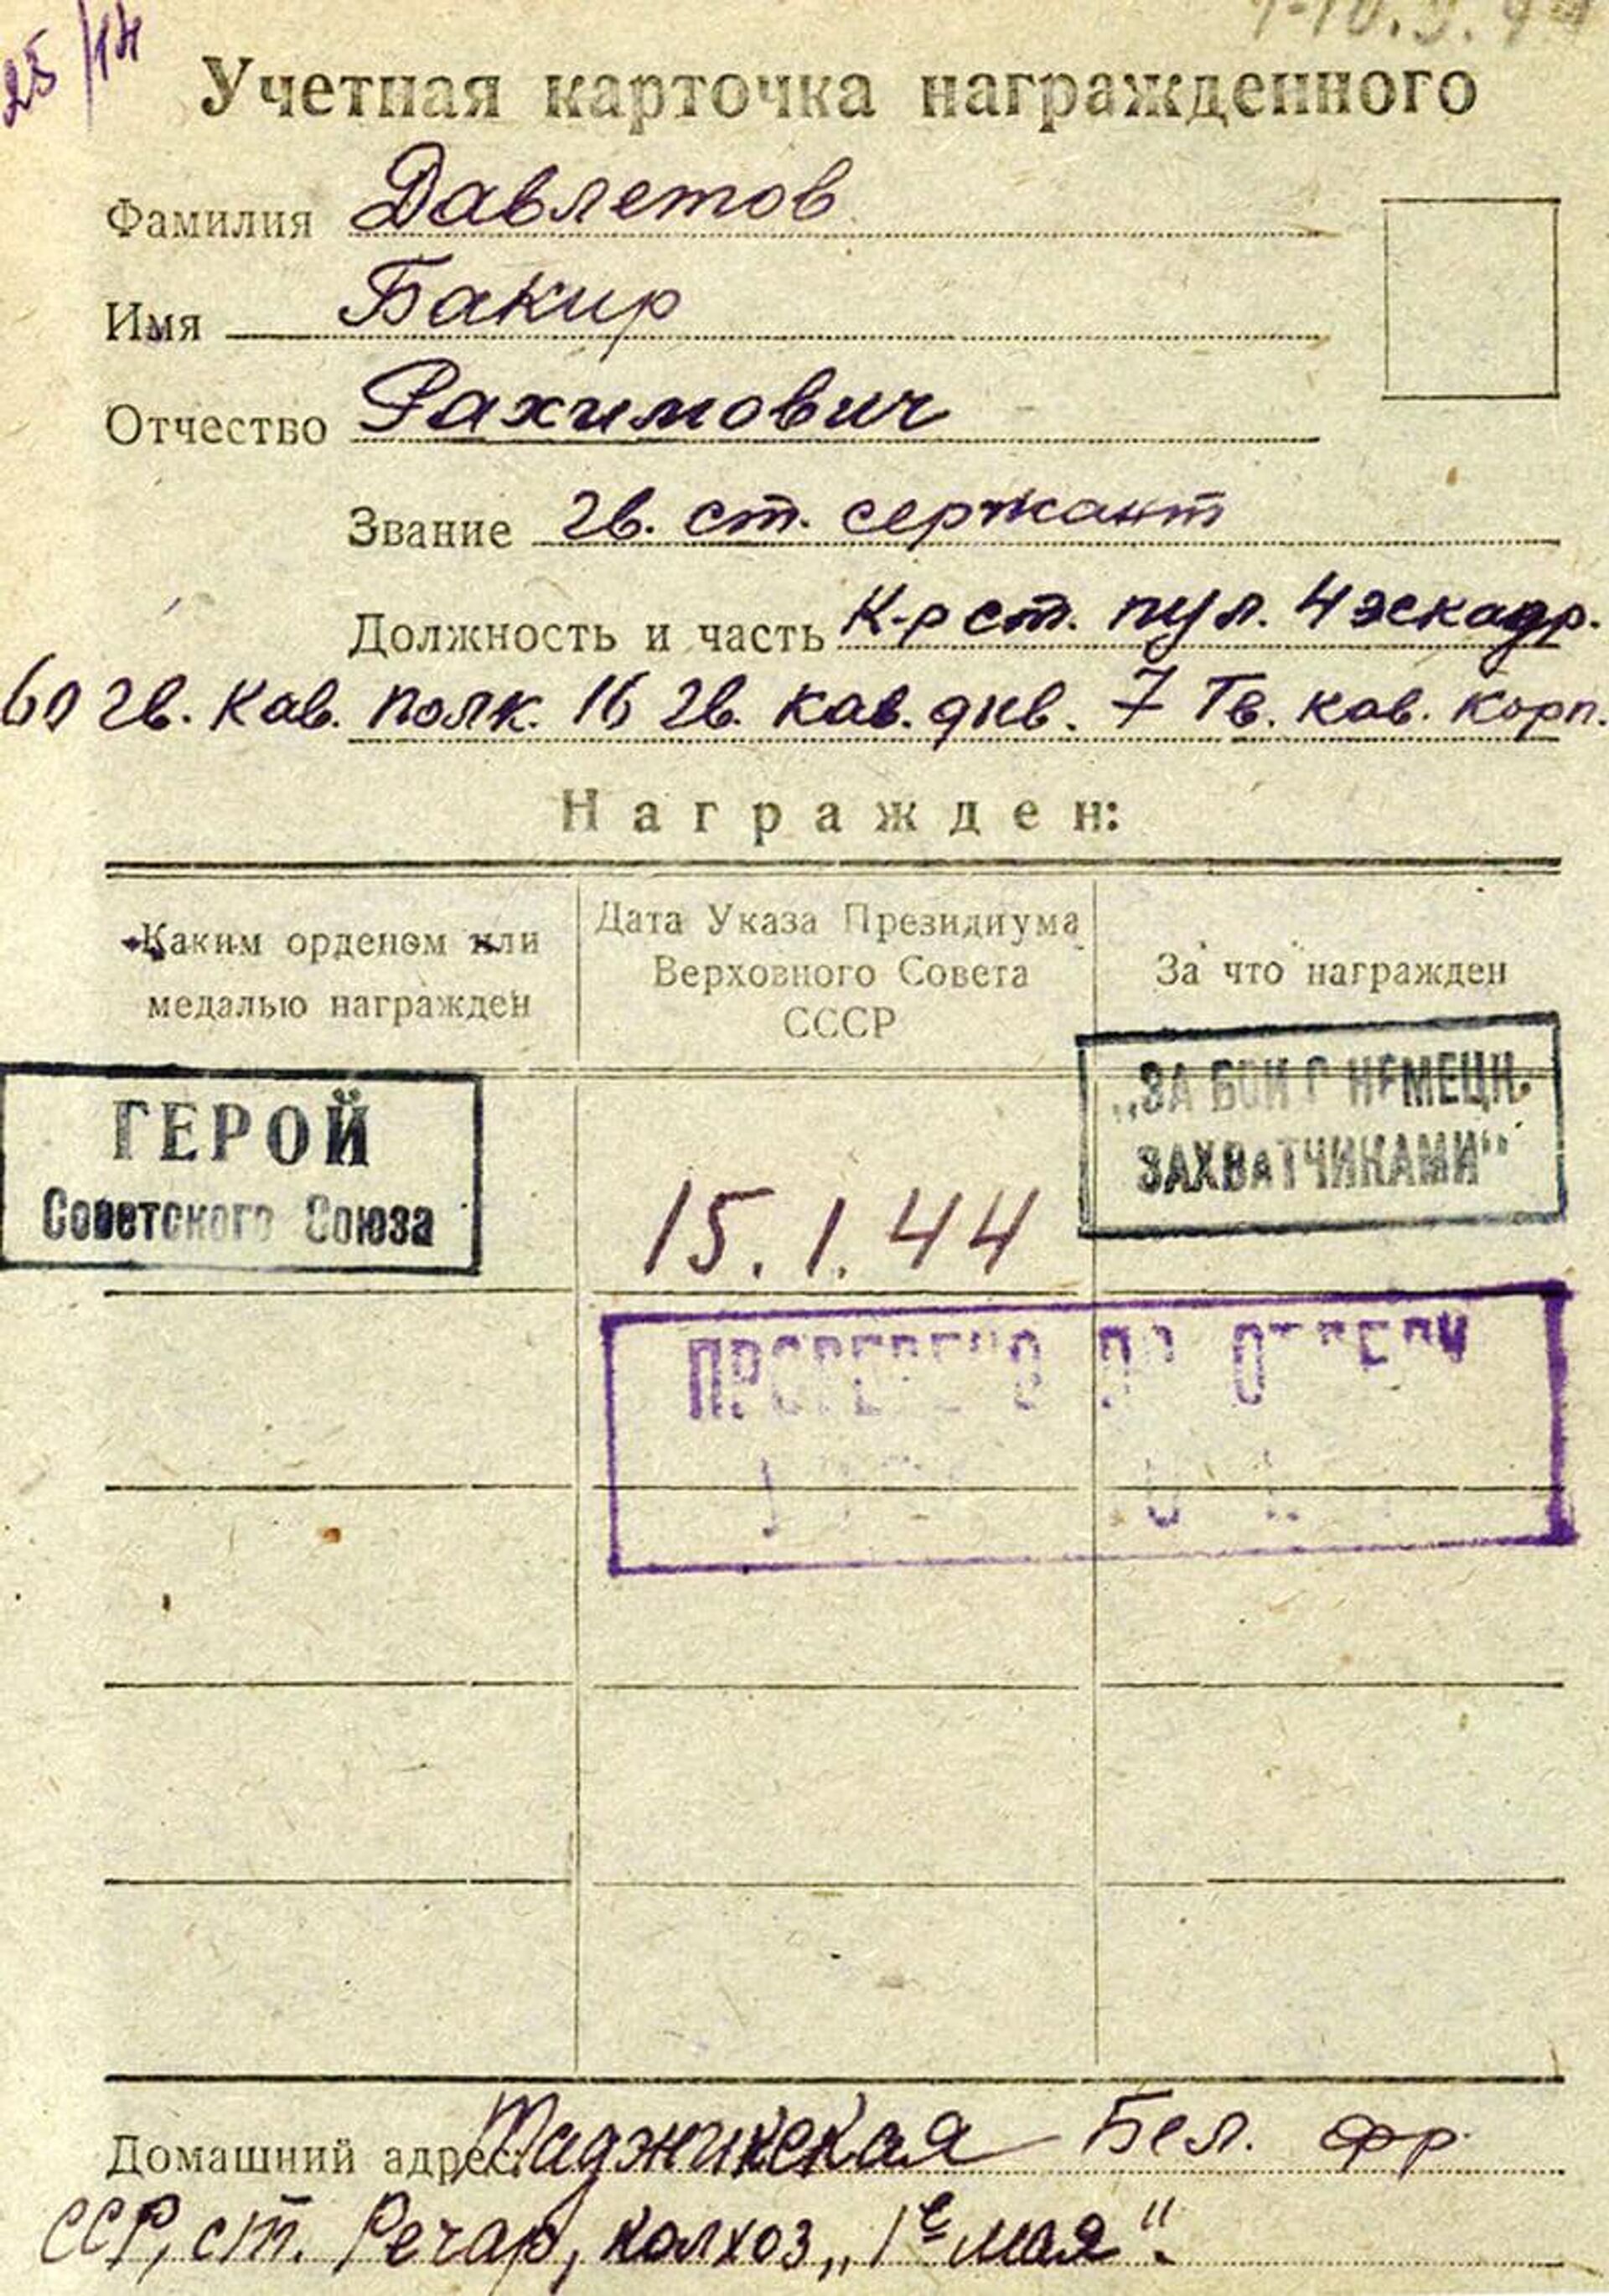 25/14
Учетная карточка награжденного
Фамилия Давлетов
Имя Бакир
Отчество Рахимович
Звание гв. ст. сержант
Должность и часть К-р ст. пул. 4 эскадр.
60 гв. кав. полк. 16 гв. кав. див. 7 Гв. кав. корп.
Награжден:
Каким орденом или
медалью награжден
Дата Указа Президиума
Верховного Совета
СССР
За что награжден
ГЕРОЙ
Советского Союза
15.1.44
„ЗА БОИ С НЕМЕЦК.
ЗАХВАТЧИКАМИ"
Домашний адрес: Таджикская Бел. фр.
ССР, ст. Речар, колхоз „1е мая".